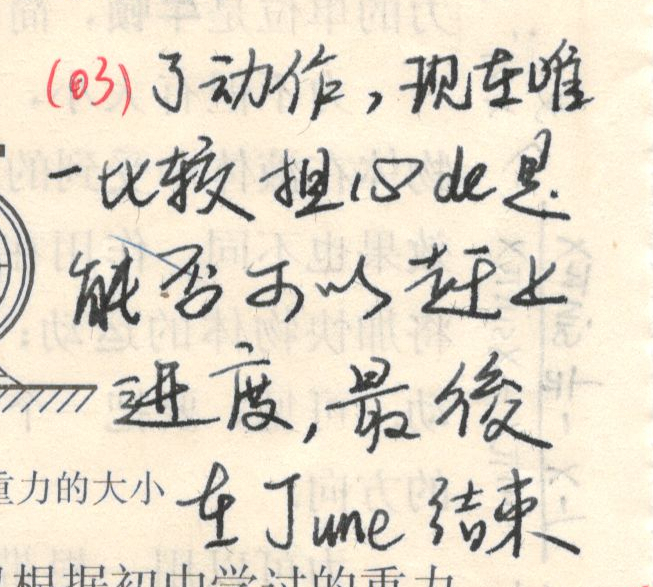 (03)了动作，现在唯
一比较担心de是
能否可以赶上
进度，最後
重力的大小
在June结束
根据初中学过的重力